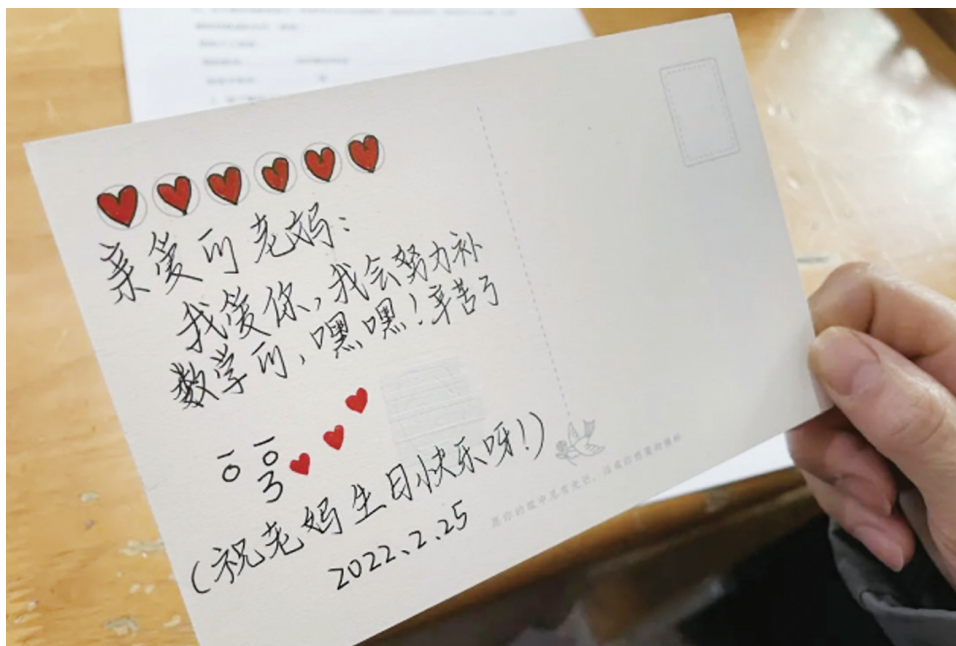 亲爱的老妈：
我爱你，我会努力补
数学的，嘿嘿！辛苦了
（祝老妈生日快乐呀！）
2022.2.25